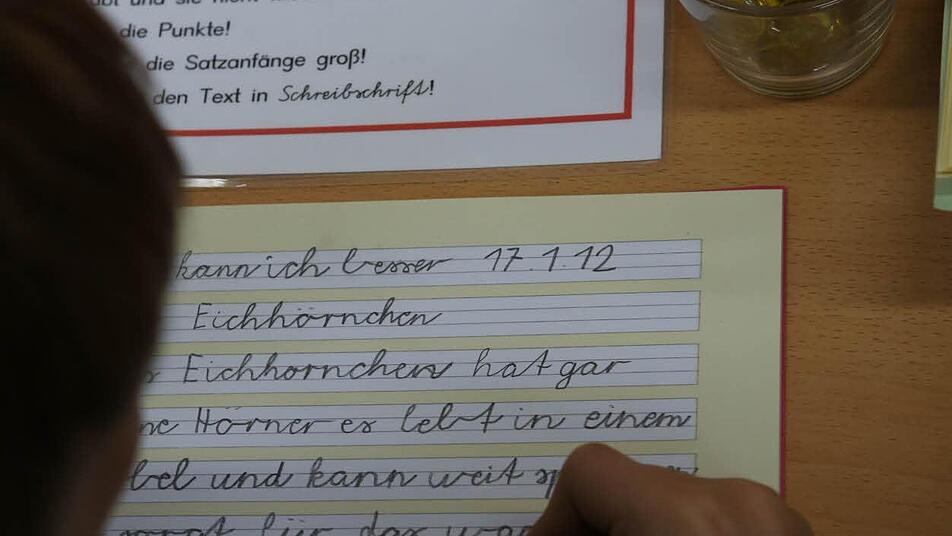 und sie nicht
die Punkte!
die Satzanfänge groß!
den Text in Schreibschrift!
kann ich besser 17.1.12
Eichhörnchen
Eichhornchen hat gar
ne Hörner er lebt in einem
bel und kann weit
für das